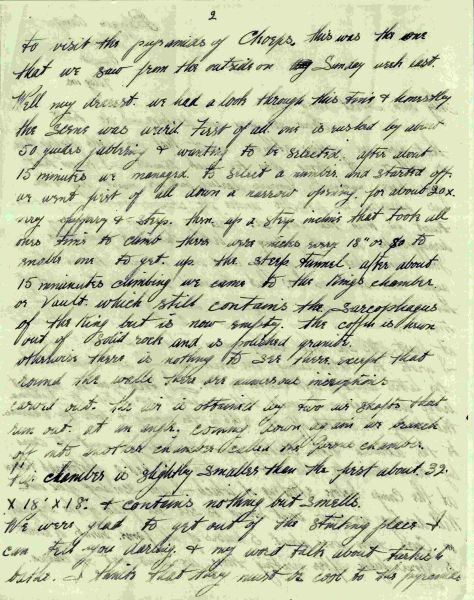 2
to visit the pyramids of Cheops, this was the one
that we saw from the outside on Sunday week last
Well my dearest we had a look through this time & honestly
the scene was weird. First of all one is rushed by about
50 guides jabbering & wanting to be selected. after about
15 minutes we managed to select a number and started off
we went first of all down a narrow opening for about 20x
very slippery & steep. then up a steep incline that took all
ones time to climb there were niches every 18" or so to
enable one to get up the steep tunnel. after about
15 minutes climbing we came to the Kings chamber
or Vault. which still contains the Sarcophagus
of the King but is now empty. the coffin is hewn
out of solid rock and is polished granite.
otherwise there is nothing to see there except that
round the walls there are numerous inscriptions
carved out. the air is obtained by two air shafts that
run out at an angle. coming down again we branch
off into another chamber called the chamber
The chamber is slightly smaller than the first about 32
x 18' x 18'. & contains nothing but smells.
We were glad to get out of the place I
can tell you darling. & my word talk about turkish
baths. I think that they must be cool to the pyramids